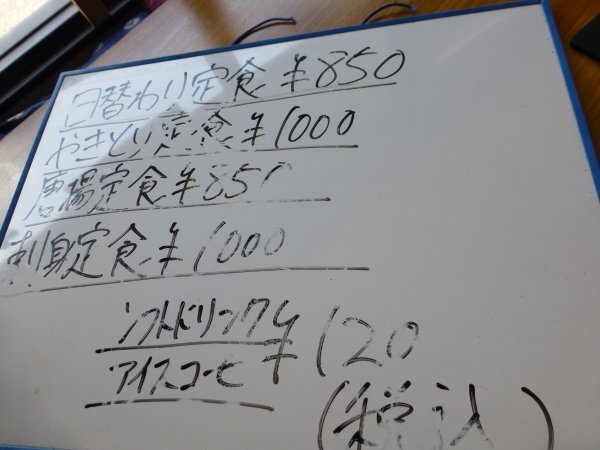 日替わり定食 ¥850
やきとり定食 ¥1000
唐揚定食 ¥850
刺身定食 ¥1000
ソフトドリンク
アイスコーヒ ¥120
(税込)